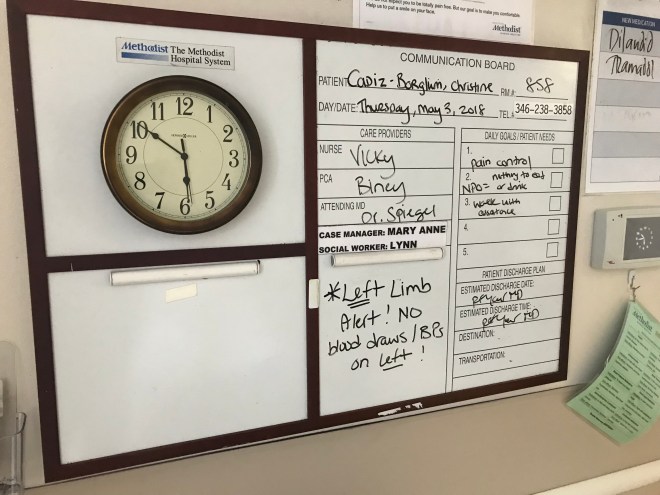 expect you to be totally pain free. But our goal is to make you comfortable.
Help us to put a smile on your face.
Methodist
NEW MEDICATION
Dilaudid
Tramadol
Methodist The Methodist
Hospital System
12 1 2 3 4 5 6 7 8 9 10 11
COMMUNICATION BOARD
PATIENT Cadiz-Borglum, Christine RM # 858
DAY/DATE: Thursday, May 3, 2018 TEL # 346-238-3858
CARE PROVIDERS
NURSE Vicky
PCA Biney
ATTENDING MD Dr. Spiegel
CASE MANAGER: MARY ANNE
SOCIAL WORKER: LYNN
*Left Limb
Alert! NO
blood draws/BPs
on Left!
DAILY GOALS / PATIENT NEEDS
1. Pain control
2. nothing to eat
NPO= or drink
3. walk with
assistance
4.
5.
PATIENT DISCHARGE PLAN
ESTIMATED DISCHARGE DATE:
per your MD
ESTIMATED DISCHARGE TIME:
per your MD
DESTINATION:
TRANSPORTATION:
Methodist